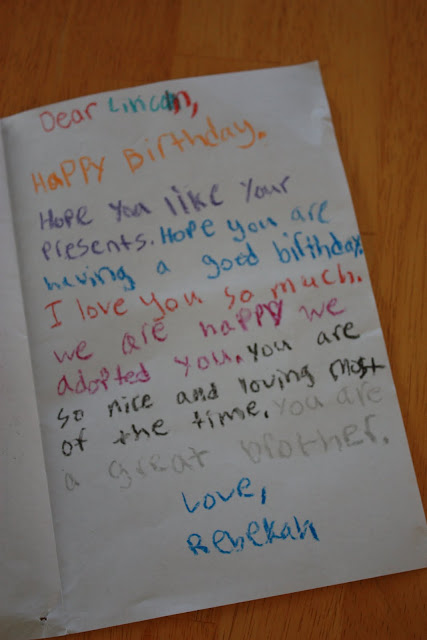 Dear Lincoln,
Happy Birthday.
Hope you like your
presents. Hope you are
having a good birthday.
I love you so much.
we are happy we
adopted you. you are
so nice and loving most
of the time. you are
a great brother.
Love,
Rebekah